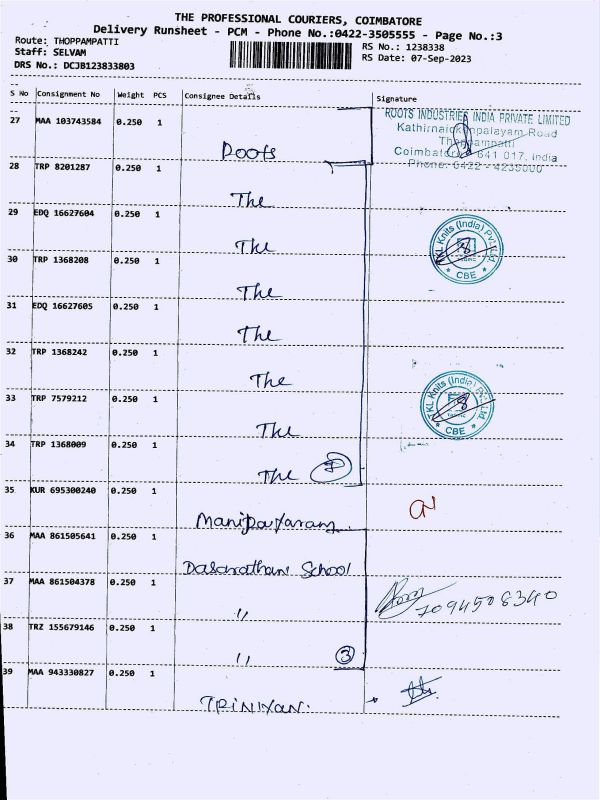 THE PROFESSIONAL COURIERS, COIMBATORE
Delivery Runsheet - PCM - Phone No.:0422-3505555 - Page No.:3
Route: THOPPAMPATTI
RS No.: 1238338
Staff: SELVAM
RS Date: 07-Sep-2023
DRS No.: DCJB123833803
S No Consignment No Weight PCS Consignee Details Signature
27 MAA 103743584 0.250 1
Roots
ROOTS INDUSTRIES INDIA PRIVATE LIMITED
Kathirnaickenpalayam Road
Thoppampatti
Coimbatore 641 017, India
Phone: 0422 - 4235000
28 TRP 8201287 0.250 1
The
29 EDQ 16627604 0.250 1
The
TKL Knits (India) Pvt. Ltd.
CBE
30 TRP 1368208 0.250 1
The
31 EDQ 16627605 0.250 1
The
32 TRP 1368242 0.250 1
The
33 TRP 7579212 0.250 1
The
TKL Knits (India) Pvt. Ltd.
CBE
34 TRP 1368009 0.250 1
The 7
35 KUR 695300240 0.250 1
36 MAA 861505641 0.250 1
Dasarathan School
37 MAA 861504378 0.250 1
"
7094508340
38 TRZ 155679146 0.250 1
" 3
39 MAA 943330827 0.250 1